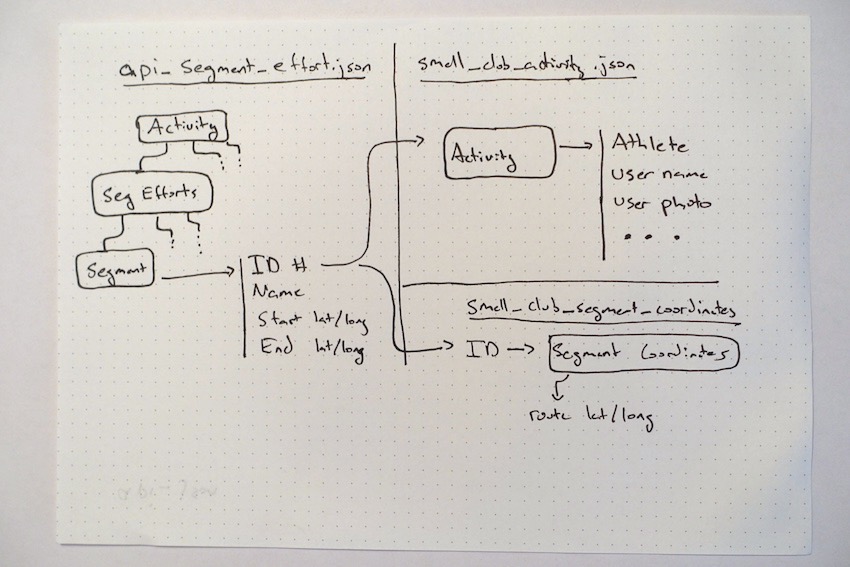 api_segment_effort.json
Activity
Seg Efforts
Segment
ID #
Name
Start lat/long
End lat/long
smell_club_activity.json
Activity
Athlete
User name
User photo
. . .
smell_club_segment_coordinates
ID
Segment Coordinates
route lat/long